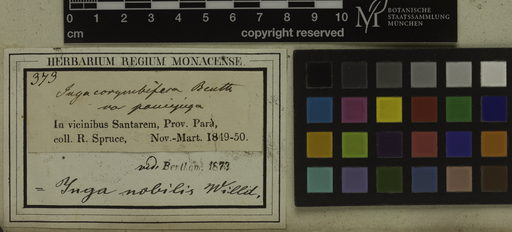 0 1 2 3 4 5 6 7 8 9 10
cm
copyright reserved
BOTANISCHE
STAATSSAMMLUNG
MÜNCHEN
HERBARIUM REGIUM MONACENSE.
373
Inga corymbifera Benth
var paucijuga
In vicinibus Santarem, Prov. Parà,
coll. R. Spruce, Nov.-Mart. 1849-50.
vid. Benth 1873
= Inga nobilis Willd.